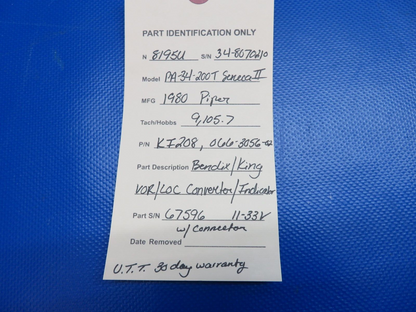 PART IDENTIFICATION ONLY
N 8195U S/N 34-8070210
Model PA-34-200T Seneca II
MFG 1980 Piper
Tach/Hobbs 9,105.7
P/N KI208, 066-3056-02
Part Description Bendix/King
VOR/LOC Convertor/Indicator
Part S/N 67596 11-33V
w/ connector
Date Removed
U.T.T. 30 day warranty